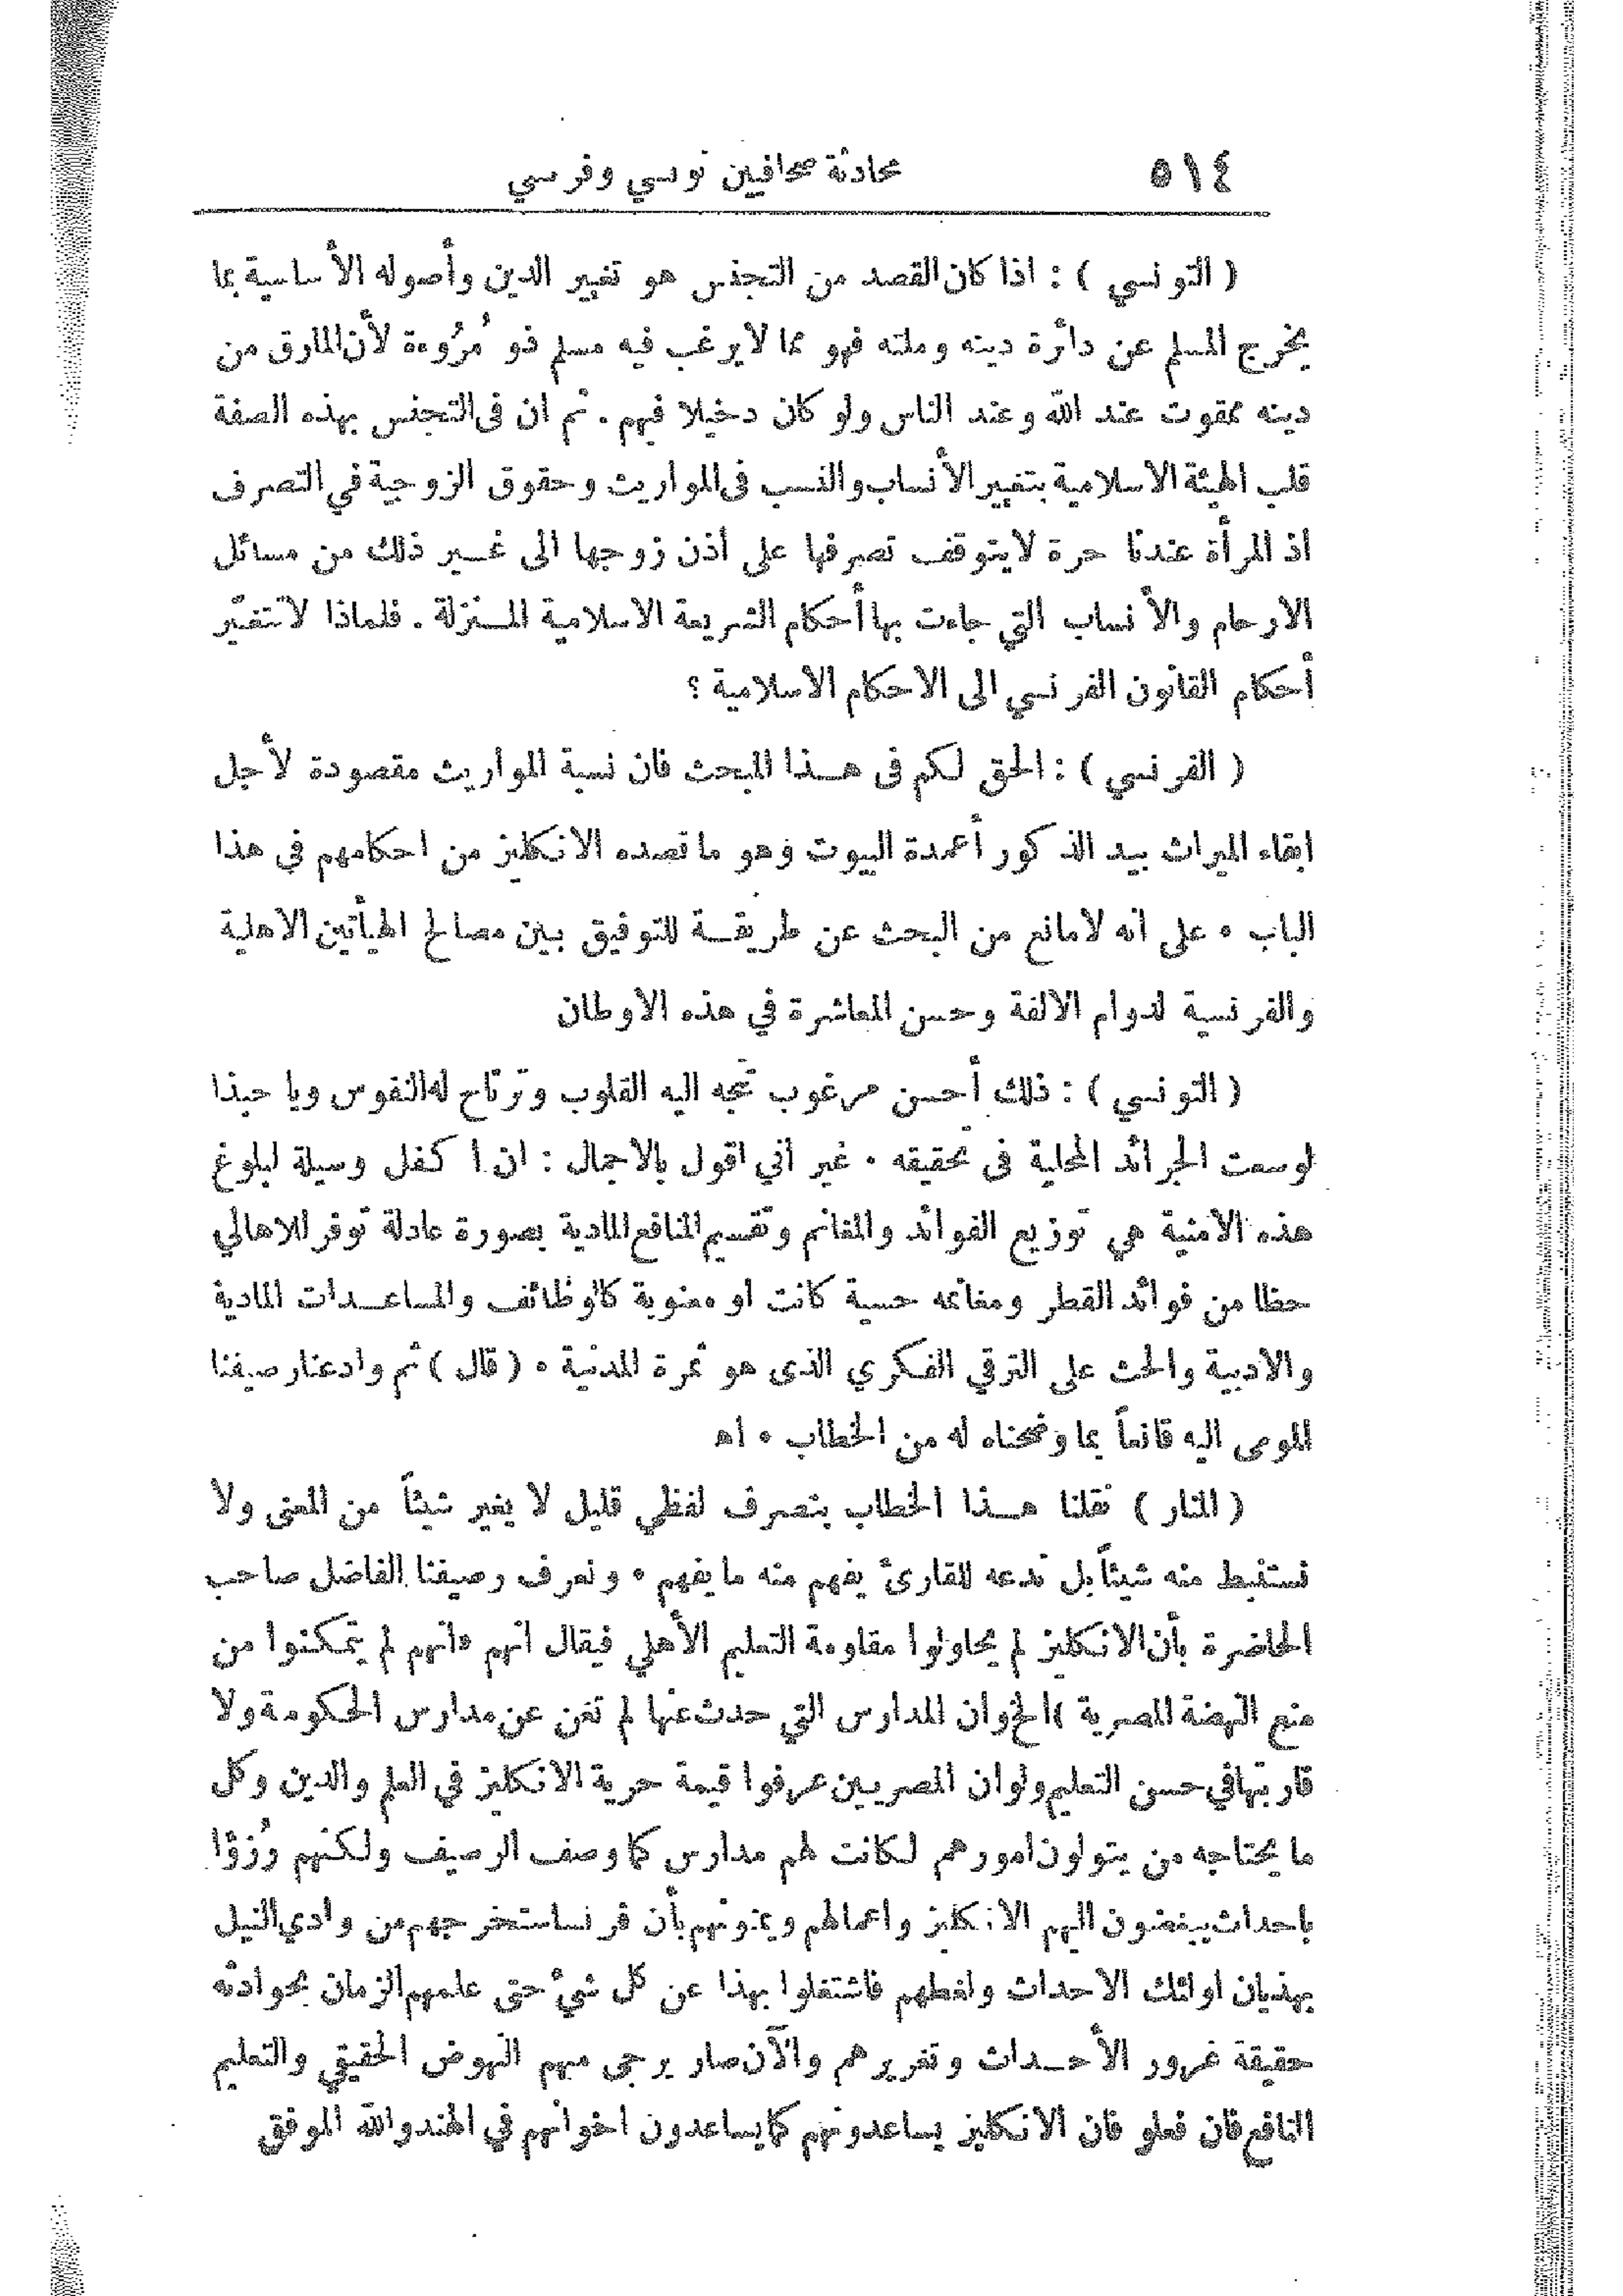 ٥١٤ محادثة صحافيين تونسي وفرنسي
( التونسي ) : اذا كان القصد من التجنس هو تغيير الدين وأصوله الأساسية بما
يخرج المسلم عن دائرة دينه وملته فهو مما لا يرغب فيه مسلم ذو مُرُوءة لأن المارق من
دينه ممقوت عند الله وعند الناس ولو كان دخيلا فيهم . ثم ان في التجنس بهذه الصفة
قلب الهيئة الاسلامية بتغيير الأنساب والنسب في المواريث وحقوق الزوجية في التصرف
اذ المرأة عندنا حرة لا يتوقف تصرفها على أذن زوجها الى غير ذلك من مسائل
الارحام والأنساب التي جاءت بها أحكام الشريعة الاسلامية المنزلة . فلماذا لا تتغير
أحكام القانون الفرنسي الى الاحكام الاسلامية ؟
( الفرنسي ) : الحق لكم في هذا المبحث فان نسبة المواريث مقصودة لأجل
ابقاء الميراث بيد الذكور أعمدة البيوت وهو ما قصده الانكليز من احكامهم في هذا
الباب ٠ على انه لا مانع من البحث عن طريقة للتوفيق بين مصالح الهيأتين الاهلية
والفرنسية لدوام الالفة وحسن المعاشرة في هذه الاوطان
( التونسي ) : ذلك أحسن مرغوب تتجه اليه القلوب وترتاح له النفوس ويا حبذا
لو سعت الجرائد المحلية في تحقيقه ٠ غير أني اقول بالاجمال : ان أكفل وسيلة لبلوغ
هذه الامنية هي توزيع الفوائد والمغانم وتقسيم المنافع المادية بصورة عادلة توفر للاهالي
حظا من فوائد القطر ومغانمه حسية كانت او معنوية كالوظائف والمساعدات المادية
والادبية والحث على الترقي الفكري الذي هو ثمرة المدنية ٠ ( قال ) ثم وادعنا رصيفنا
المومى اليه قانعاً بما وضحناه له من الخطاب ٠ اه
( المنار ) نقلنا هذا الخطاب بتصرف لفظي قليل لا يغير شيئاً من المعنى ولا
نستنبط منه شيئاً بل ندعه للقارئ يفهم منه ما يفهم ٠ ونعرف رصيفنا الفاضل صاحب
الحاضرة بأن الانكليز لم يحاولوا مقاومة التعليم الأهلي فيقال انهم «انهم لم يتمكنوا من
منع النهضة المصرية » الخ وان المدارس التي حدث عنها لم تغن عن مدارس الحكومة ولا
قاربتها في حسن التعليم ولو ان المصريين عرفوا قيمة حرية الانكليز في العلم والدين وكل
ما يحتاجه من يتولون امورهم لكانت لهم مدارس كما وصف الرصيف ولكنهم رُزؤا
باحداث يبغضون اليهم الانكليز واعمالهم ويمنونهم بأن فرنسا ستخرجهم من وادي النيل
بهذيان اولئك الاحداث ولغطهم فاشتغلوا بهذا عن كل شيء حتى علمهم الزمان بحوادثه
حقيقة غرور الأحداث وتغريرهم والآن صار يرجى منهم النهوض الحقيقي والتعليم
النافع فان فعلو فان الانكليز يساعدونهم كما يساعدون اخوانهم في الهند والله الموفق